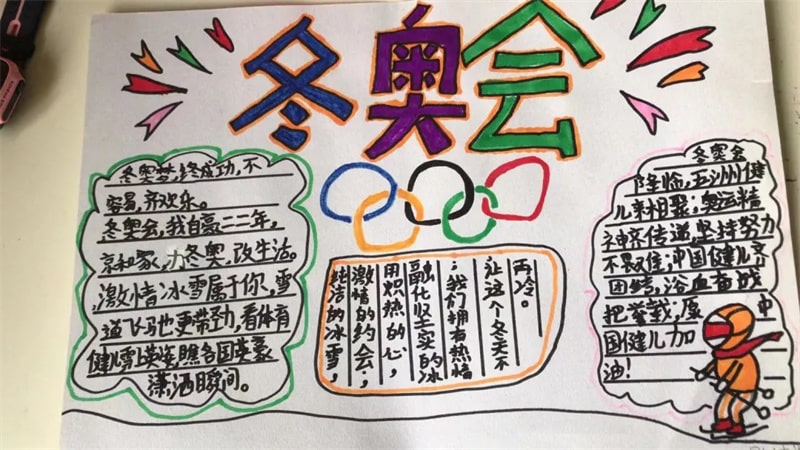 冬奥会
冬奥梦,终成功,不
容易,齐欢乐。
冬奥会,我自豪二二年,
京和家,办冬奥,改生活。
激情冰雪属于你,雪
道飞马也更带劲,看体有
健儿雪上英姿,瞧各国英豪
潇洒瞬间。
纯洁的冰雪,
激情的约会,
用炽热的心,
融化坚实的冰
;我们拥有热情
让这个冬天不
再冷。
冬奥会
降临,五洲州健
儿来相聚;奥运精
神齐传递,坚持努力
不畏难;中国健儿齐
团结,浴血奋战
把誉载;愿中
国健儿加
油!